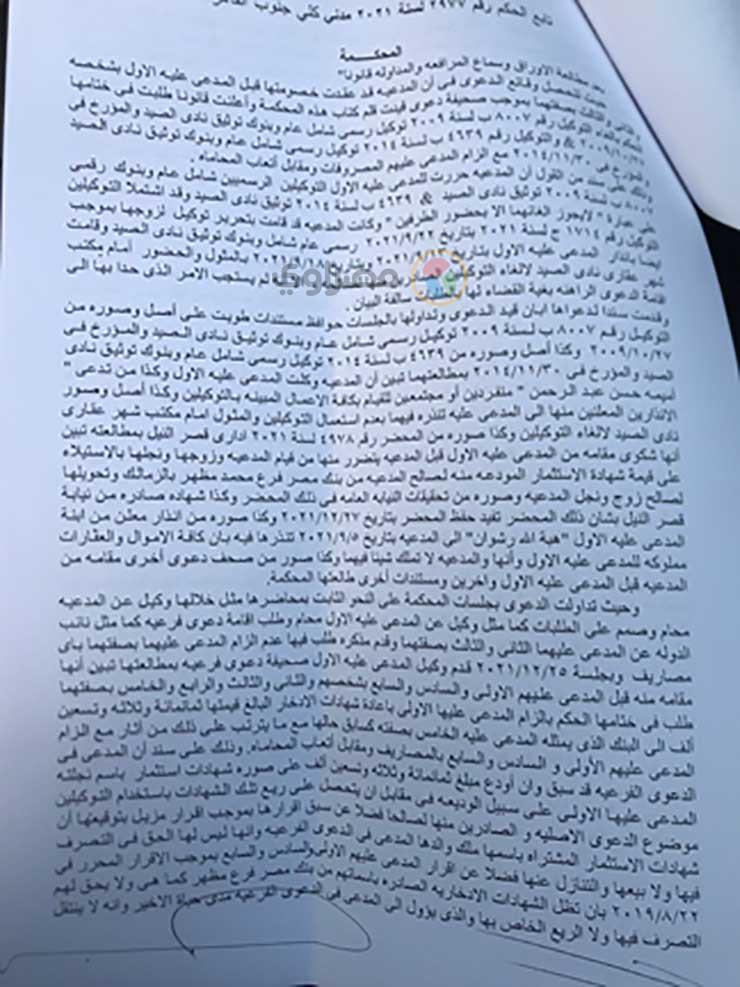 تابع الحكم رقم ٢٩٧٧ لسنة ٢٠٢١ مدني كلي جنوب القاهرة
المحكمة
بعد مطالعة الاوراق وسماع المرافعه والمداوله قانونا"
حيث تتحصل وقائع الدعوى فى أن المدعيه قد عقدت خصومتها قبل المدعى عليه الاول بشخصه
والثانى والثالث بصفتهما بموجب صحيفة دعوى قيدت قلم كتاب هذه المحكمة وأعلنت قانونا طلبت فى ختامها
الحكم بالغاء التوكيل رقم ٨٠٠٧ ب لسنة ٢٠٠٩ توكيل رسمى شامل عام وبنوك توثيق نادى الصيد والمؤرخ فى
٢٠٠٩/١٠/٢٧ & والتوكيل رقم ٤٦٣٩ ب لسنة ٢٠١٤ توكيل رسمى شامل عام وبنوك توثيق نادى الصيد
والمؤرخ فى ٢٠١٤/١١/٣٠ مع الزام المدعى عليهم المصروفات ومقابل أتعاب المحاماه .
وذلك على سند من القول أن المدعيه حررت للمدعى عليه الاول التوكيلين الرسميين شامل عام وبنوك رقمى
٨٠٠٧ ب لسنة ٢٠٠٩ توثيق نادى الصيد & ٤٦٣٩ ب لسنة ٢٠١٤ توثيق نادى الصيد وقد اشتملا التوكيلين
على عبارة " لايجوز الغائهما الا بحضور الطرفين " وكانت المدعيه قد قامت بتحرير توكيل لزوجها بموجب
التوكيل رقم ١٧١٤ ح لسنة ٢٠٢١ بتاريخ ٢٠٢١/٩/٢٢ رسمى عام شامل وبنوك توثيق نادى الصيد وقامت
ايضا بانذار المدعى عليه الاول بتاريخ ٢٠٢١ وبتاريخ ٢٠٢١/٩/١٨ بالمثول والحضور أمام مكتب
شهر عقارى نادى الصيد لالغاء التوكيلين لم يستجب الامر الذى حدا بها الى
اقامة الدعوى الراهنه بغية القضاء لها سالفة البيان .
وقدمت سندا لدعواها ابان قيد الدعوى وتداولها بالجلسات حوافظ مستندات طويت على أصل وصوره من
التوكيل رقم ٨٠٠٧ ب لسنة ٢٠٠٩ توكيل رسمى شامل عام وبنوك توثيق نادى الصيد والمؤرخ فى
٢٠٠٩/١٠/٢٧ وكذا أصل وصوره من ٤٦٣٩ ب لسنة ٢٠١٤ توكيل رسمى شامل عام وبنوك توثيق نادى
الصيد والمؤرخ فى ٢٠١٤/١١/٣٠ بمطالعتهما تبين أن المدعيه وكلت المدعى عليه الاول وكذا من تدعى "
اميمه حسن عبد الرحمن " منفردين أو مجتمعين للقيام بكافة الاعمال المبينه بالتوكيلين وكذا أصل وصور
الانذارين المعلنين منها الى المدعى عليه تنذره فيهما بعدم استعمال التوكيلين والمثول امام مكتب شهر عقارى
نادى الصيد لالغاء التوكيلين وكذا صوره من المحضر رقم ٤٩٧٨ لسنة ٢٠٢١ ادارى قصر النيل بمطالعته تبين
أنها شكوى مقامه من المدعى عليه الاول قبل المدعيه يتضرر منها من قيام المدعيه وزوجها ونجلها بالاستيلاء
على قيمة شهادة الاستثمار المودعه منه لصالح المدعيه من بنك مصر فرع محمد مظهر بالزمالك وتحويلها
لصالح زوج ونجل المدعيه وصوره من تحقيقات النيابه العامه فى ذلك المحضر وكذا شهاده صادره من نيابة
قصر النيل بشان ذلك المحضر تفيد حفظ المحضر بتاريخ ٢٠٢١/١٢/٢٧ وكذا صوره من انذار معلن من ابنة
المدعى عليه الاول "هبة الله رشوان" الى المدعيه بتاريخ ٢٠٢١/٩/٥ تنذرها فيه بان كافة الاموال والعقارات
مملوكه للمدعى عليه الاول وأنها والمدعيه لا تملك شيئا فيهما وكذا صور من صحف دعوى أخرى مقامه من
المدعيه قبل المدعى عليه الاول واخرين ومستندات أخرى طالعتها المحكمة.
وحيث تداولت الدعوى بجلسات المحكمة على النحو الثابت بمحاضرها مثل خلالها وكيل عن المدعيه
محام وصمم على الطلبات كما مثل وكيل عن المدعى عليه الاول محام وطلب اقامة دعوى فرعيه كما مثل نائب
الدوله عن المدعى عليهما الثانى والثالث بصفتهما وقدم مذكره طلب فيها عدم الزام المدعى عليهما بصفتهما باى
مصاريف وبجلسة ٢٠٢١/١٢/٢٥ قدم وكيل المدعى عليه الاول صحيفة دعوى فرعيه بمطالعتها تبين أنها
مقامه منه قبل المدعى عليهم الاولى والسادس والسابع بشخصهم والثانى والثالث والرابع والخامس بصفتهما
طلب فى ختامها الحكم بالزام المدعى عليها الاولى باعادة شهادات الادخار البالغ قيمتها ثمانمائة وثلاثه وتسعين
ألف الى البنك الذى يمثله المدعى عليه الخامس بصفته كسابق حالها مع ما يترتب على ذلك من أثار مع الزام
المدعى عليهم الأولى و السادس والسابع بالمصاريف ومقابل أتعاب المحاماه. وذلك على سند أن المدعى فى
الدعوى الفرعيه قد سبق وان أودع مبلغ ثمانمائة وثلاثه وتسعين ألف على صوره شهادات استثمار باسم نجلته
المدعى عليها الاولى على سبيل الوديعه فى مقابل ان يتحصل على ريع تلك الشهادات باستخدام التوكيلين
موضوع الدعوى الاصليه و الصادرين منها لصالحها فضلا عن سبق اقرارها بموجب اقرار مزيل بتوقيعها أن
شهادات الاستثمار المشتراه باسمها ملك والدها المدعى فى الدعوى الفرعيه وانها ليس لها الحق فى التصرف
فيها ولا بيعها والتنازل عنها فضلا عن اقرار المدعى عليهم الاولى والسادس والسابع بموجب الاقرار المحرر فى
٢٠١٩/٨/٢٢ بان تظل الشهادات الادخاريه الصادره باسمائهم من بنك مصر فرع مظهر كما هى ولا يحق لهم
التصرف فيها ولا الريع الخاص بها والذى يؤول الى المدعى فى الدعوى الفرعيه مدى حياة الاخير وانه لا ينتقل
مصراوي